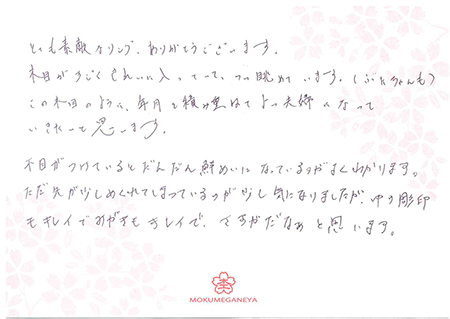 とても素敵なリング、ありがとうございます。
木目がすごくきれいに入っていて、つい眺めています。(ふたりとも)
この木目のように、年月を積み重ねてよい夫婦になって
いきたいと思います。
木目がつけているとだんだん鮮めいになっているのがよくわかります。
ただ 先が少しめくれてしまっているのが少し気になりましたが、中の彫印
もキレイでみがきもキレイで、さすがだなぁと思います。
MOKUMEGANEYA